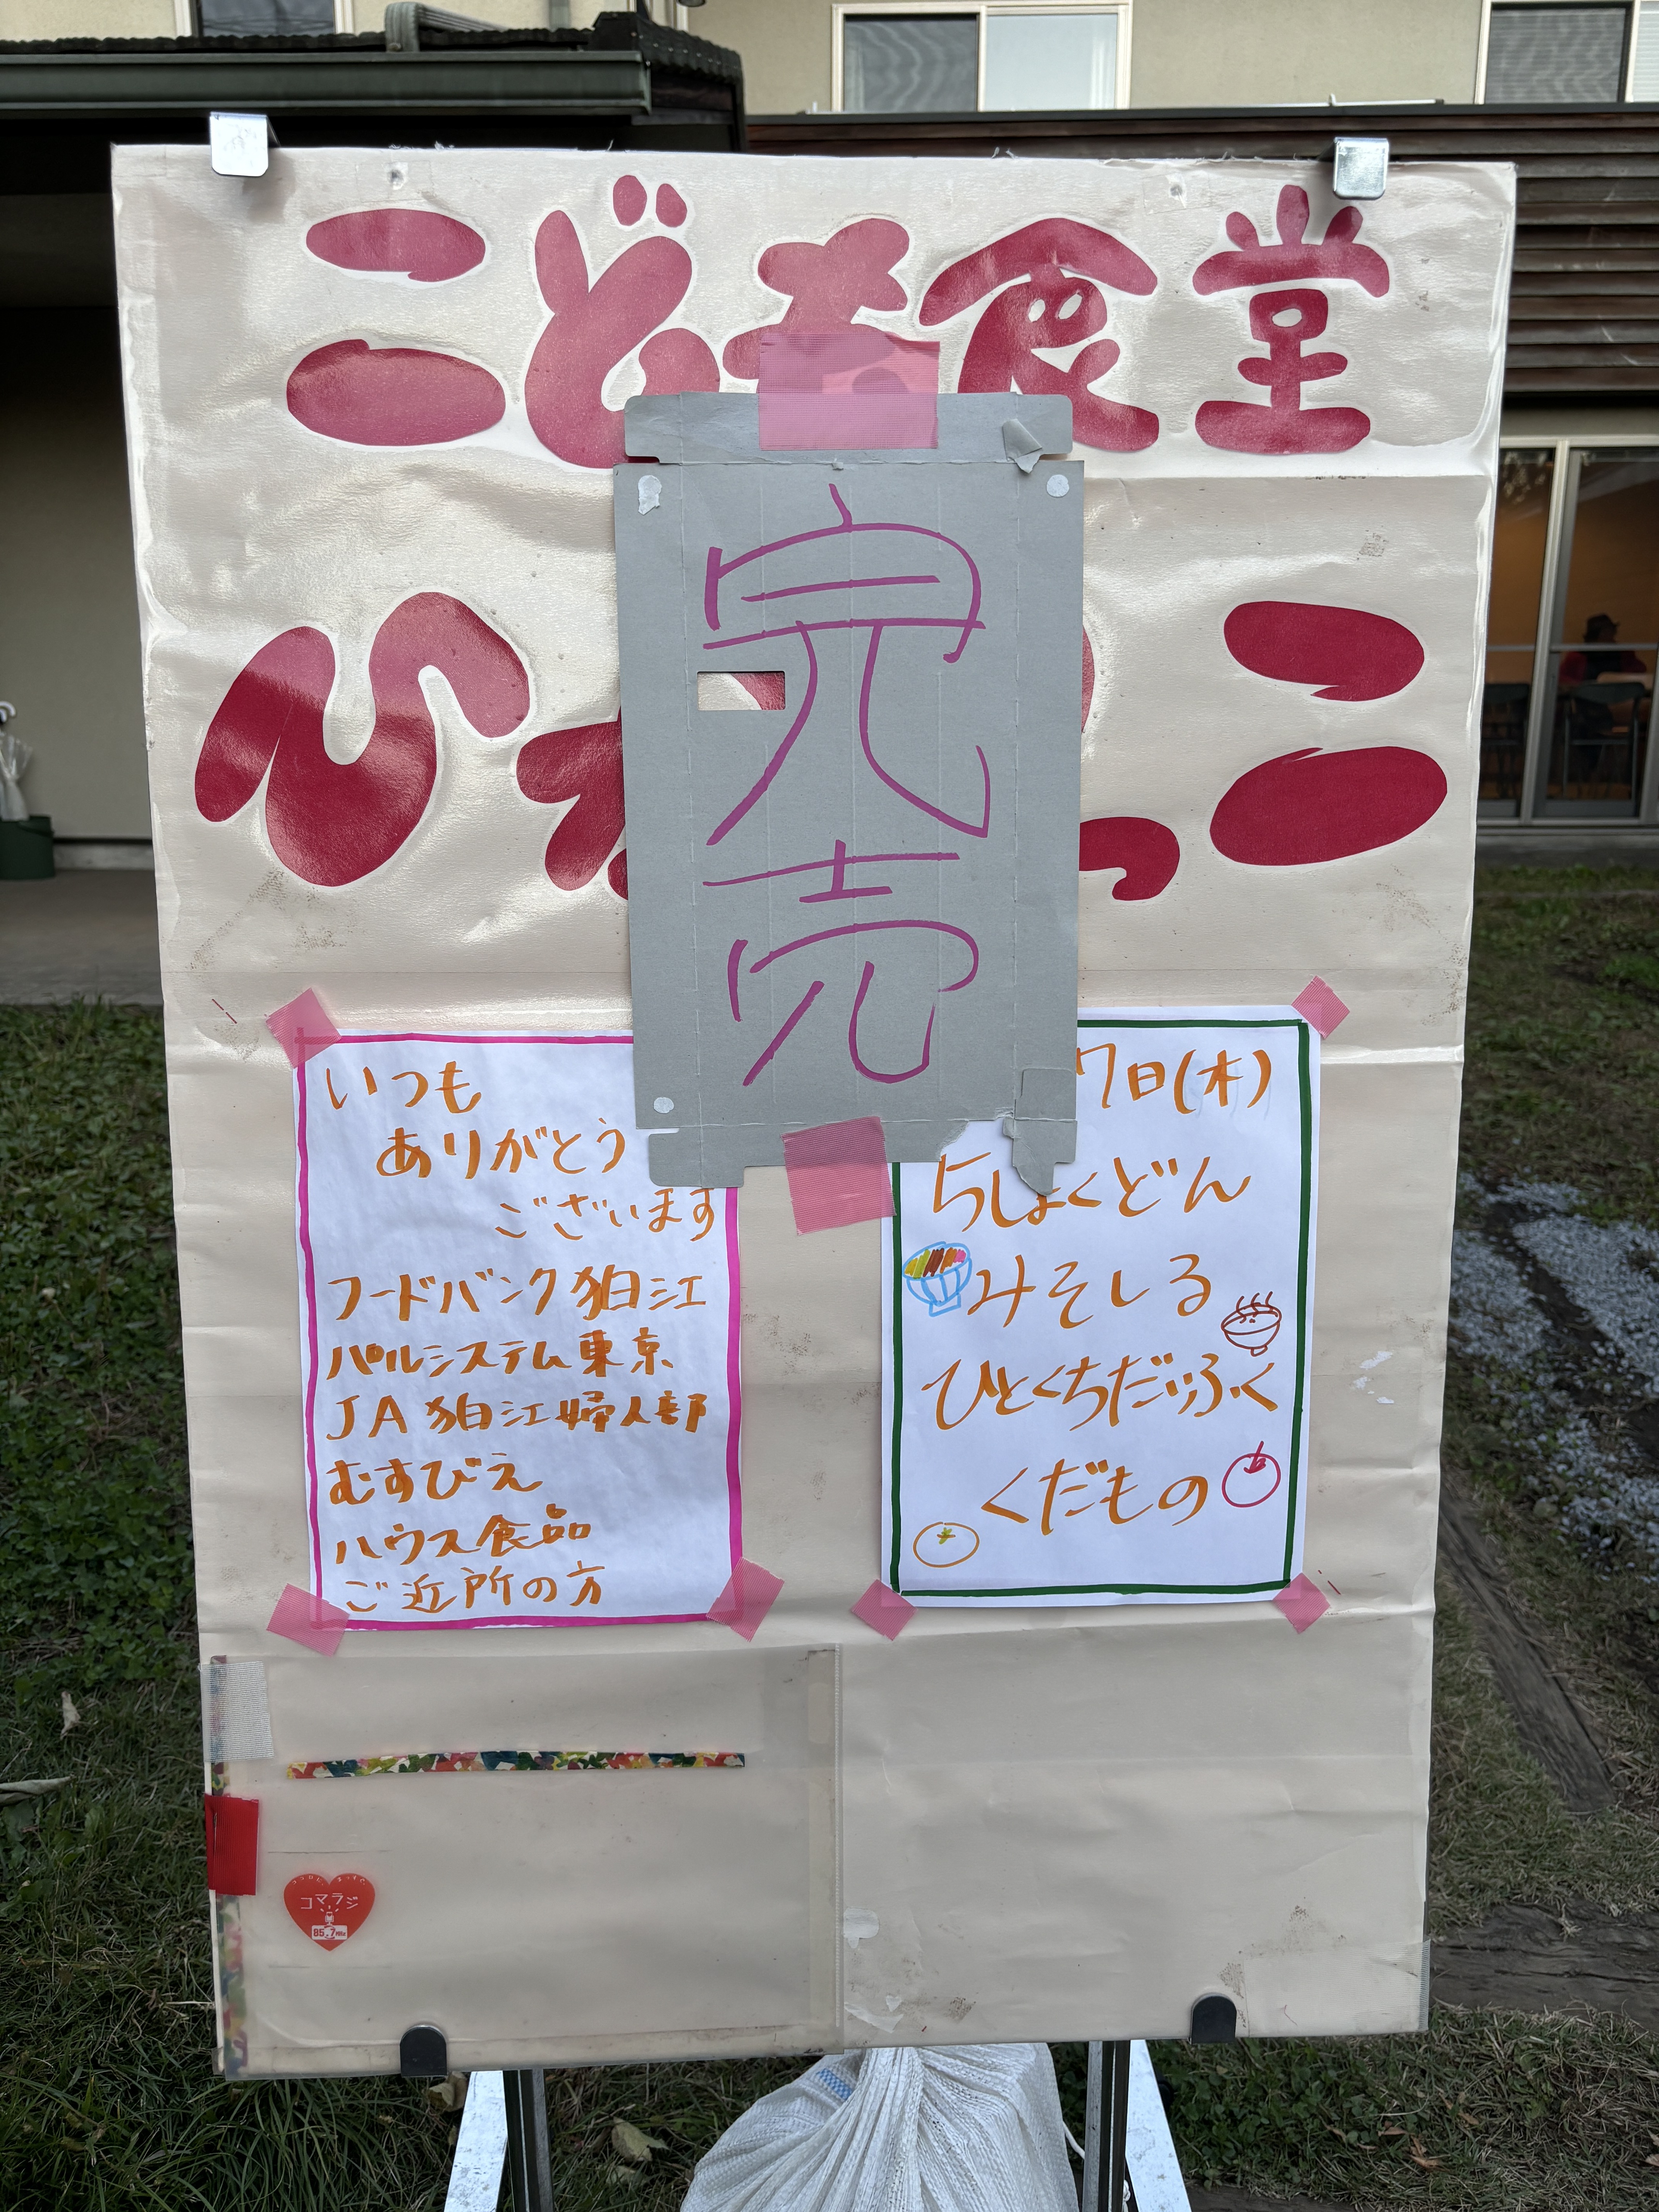 こども食堂
完売
いつも
ありがとう
ございます
フードバンク狛江
パルシステム東京
JA狛江婦人部
むすびえ
ハウス食品
ご近所の方
7日(木)
ちしょくどん
みそしる
ひとくちだいふく
くだもの
コマラジ
85.7MHz